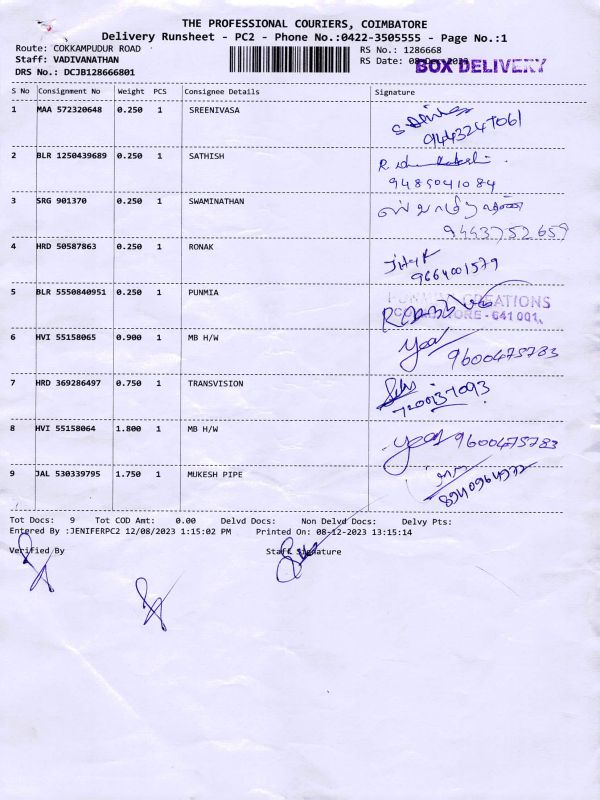 THE PROFESSIONAL COURIERS, COIMBATORE
Delivery Runsheet - PC2 - Phone No.:0422-3505555 - Page No.:1
Route: COKKAMPUDUR ROAD
Staff: VADIVANATHAN
DRS No.: DCJB128666801
RS No.: 1286668
RS Date: 08-Dec-2023
BOX DELIVERY
S No Consignment No Weight PCS Consignee Details Signature
1 MAA 572320648 0.250 1 SREENIVASA
9443247061
2 BLR 1250439689 0.250 1 SATHISH
9485041084
3 SRG 901370 0.250 1 SWAMINATHAN
9443752659
4 HRD 50587863 0.250 1 RONAK
9664001579
5 BLR 5550840951 0.250 1 PUNMIA
PUNMIA CREATIONS
COIMBATORE - 641 001.
6 HVI 55158065 0.900 1 MB H/W
9600475783
7 HRD 369286497 0.750 1 TRANSVISION
8 HVI 55158064 1.800 1 MB H/W
9600475783
9 JAL 530339795 1.750 1 MUKESH PIPE
Tot Docs: 9 Tot COD Amt: 0.00 Delvd Docs: Non Delvd Docs: Delvy Pts:
Entered By :JENIFERPC2 12/08/2023 1:15:02 PM Printed On: 08-12-2023 13:15:14
Verified By Staff Signature